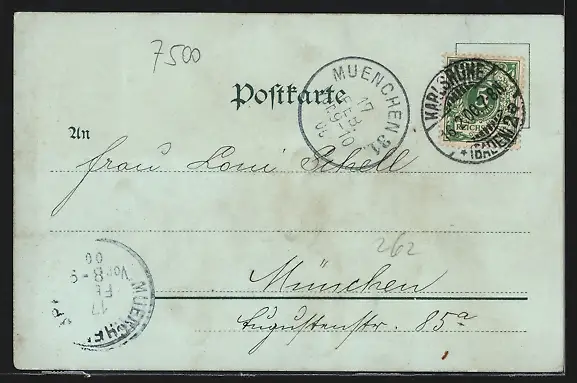 7500
Postkarte
MUENCHEN 31
17
FEB
9-10
00
KARLSRUHE
(BADEN) 2
REICHSPOST
An
Frau Loni Schell
262
München
Augustenstr. 85a
MUENCHEN
17
FE
Vor 8-9
00